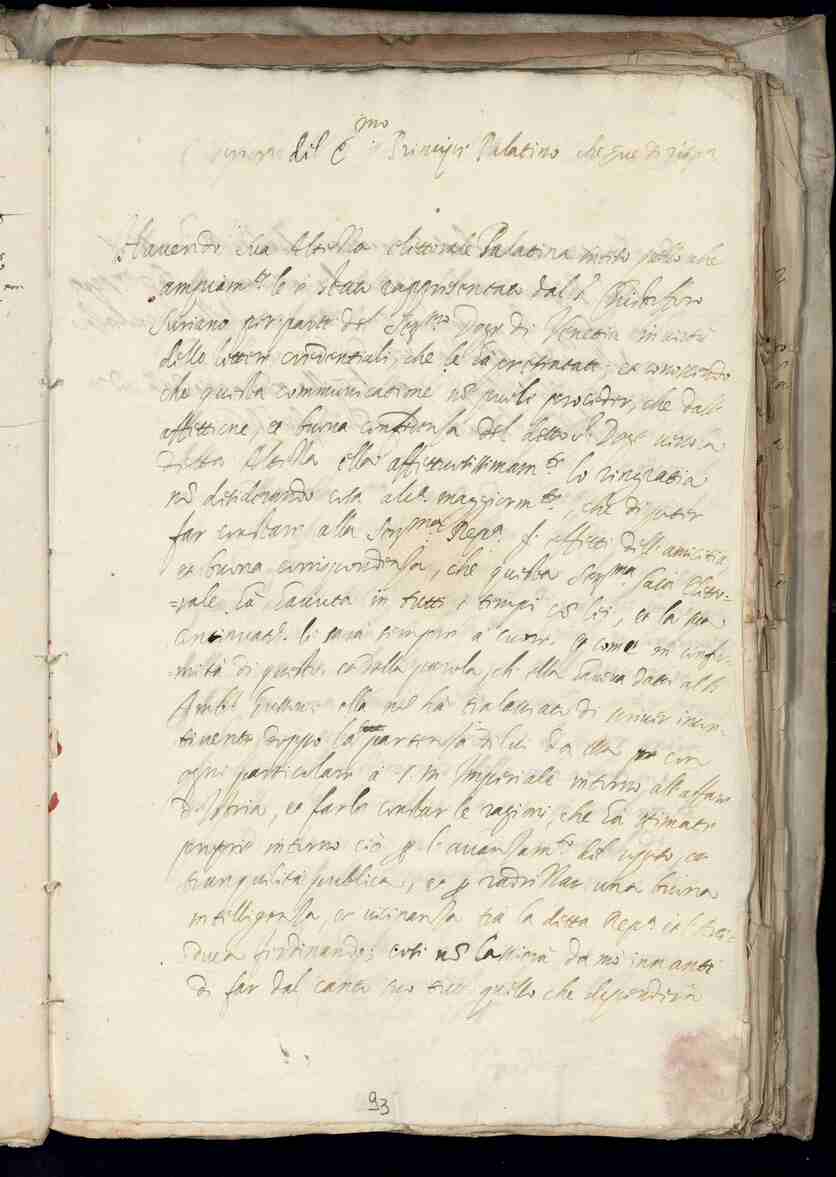 dil S.mo Principe Palatino che
Havendo Sua Altezza Elettorale Palatina inteso quello che
ampiam.te le è stato rappresentato dal S.r Christoforo
Suriano per parte del Ser.mo Doge di Venetia in virtù
delle littere credentiali, che le ha presentate, et conoscendo
che questa communicatione nõ puole proceder, che dall'
affettione, et buona confidenza del detto S.r Doge verso la
detta Altezza ella affettuosissimam.te lo ringratia
nõ desiderando cosa alc.a maggiorm.te, che di poter
far constare alla Ser.ma Rep.a gl'effetti dell'amicitia,
et buona corrispondenza, che questa Ser.ma Casa Eletto=
=rale hà havuta in tutti i tempi cõ lei, et la sua
continuat.e li sarà sempre à cuore. Et come in confor=
=mità di questo, et della parola, ch'ella haveva datta al S.
Amb.r ella nõ hà tralasciato di scriver incon=
tinente doppo la partenza di lui da con
ogni particolare à S. M. Imperiale intorno all'affare
d'Istria, et farle constar le ragioni, che hà stimate
proprie intorno ciò p l'avanzam.to del riposo, et
tranquilità publica, et p radrizzar una buona
intelligenza, et vicinanza trà la detta Rep.a et l'Arci=
duca Ferdinando; così nõ lassierà da mò innanti
di far dal canto suo tutto quello che dependerà
93